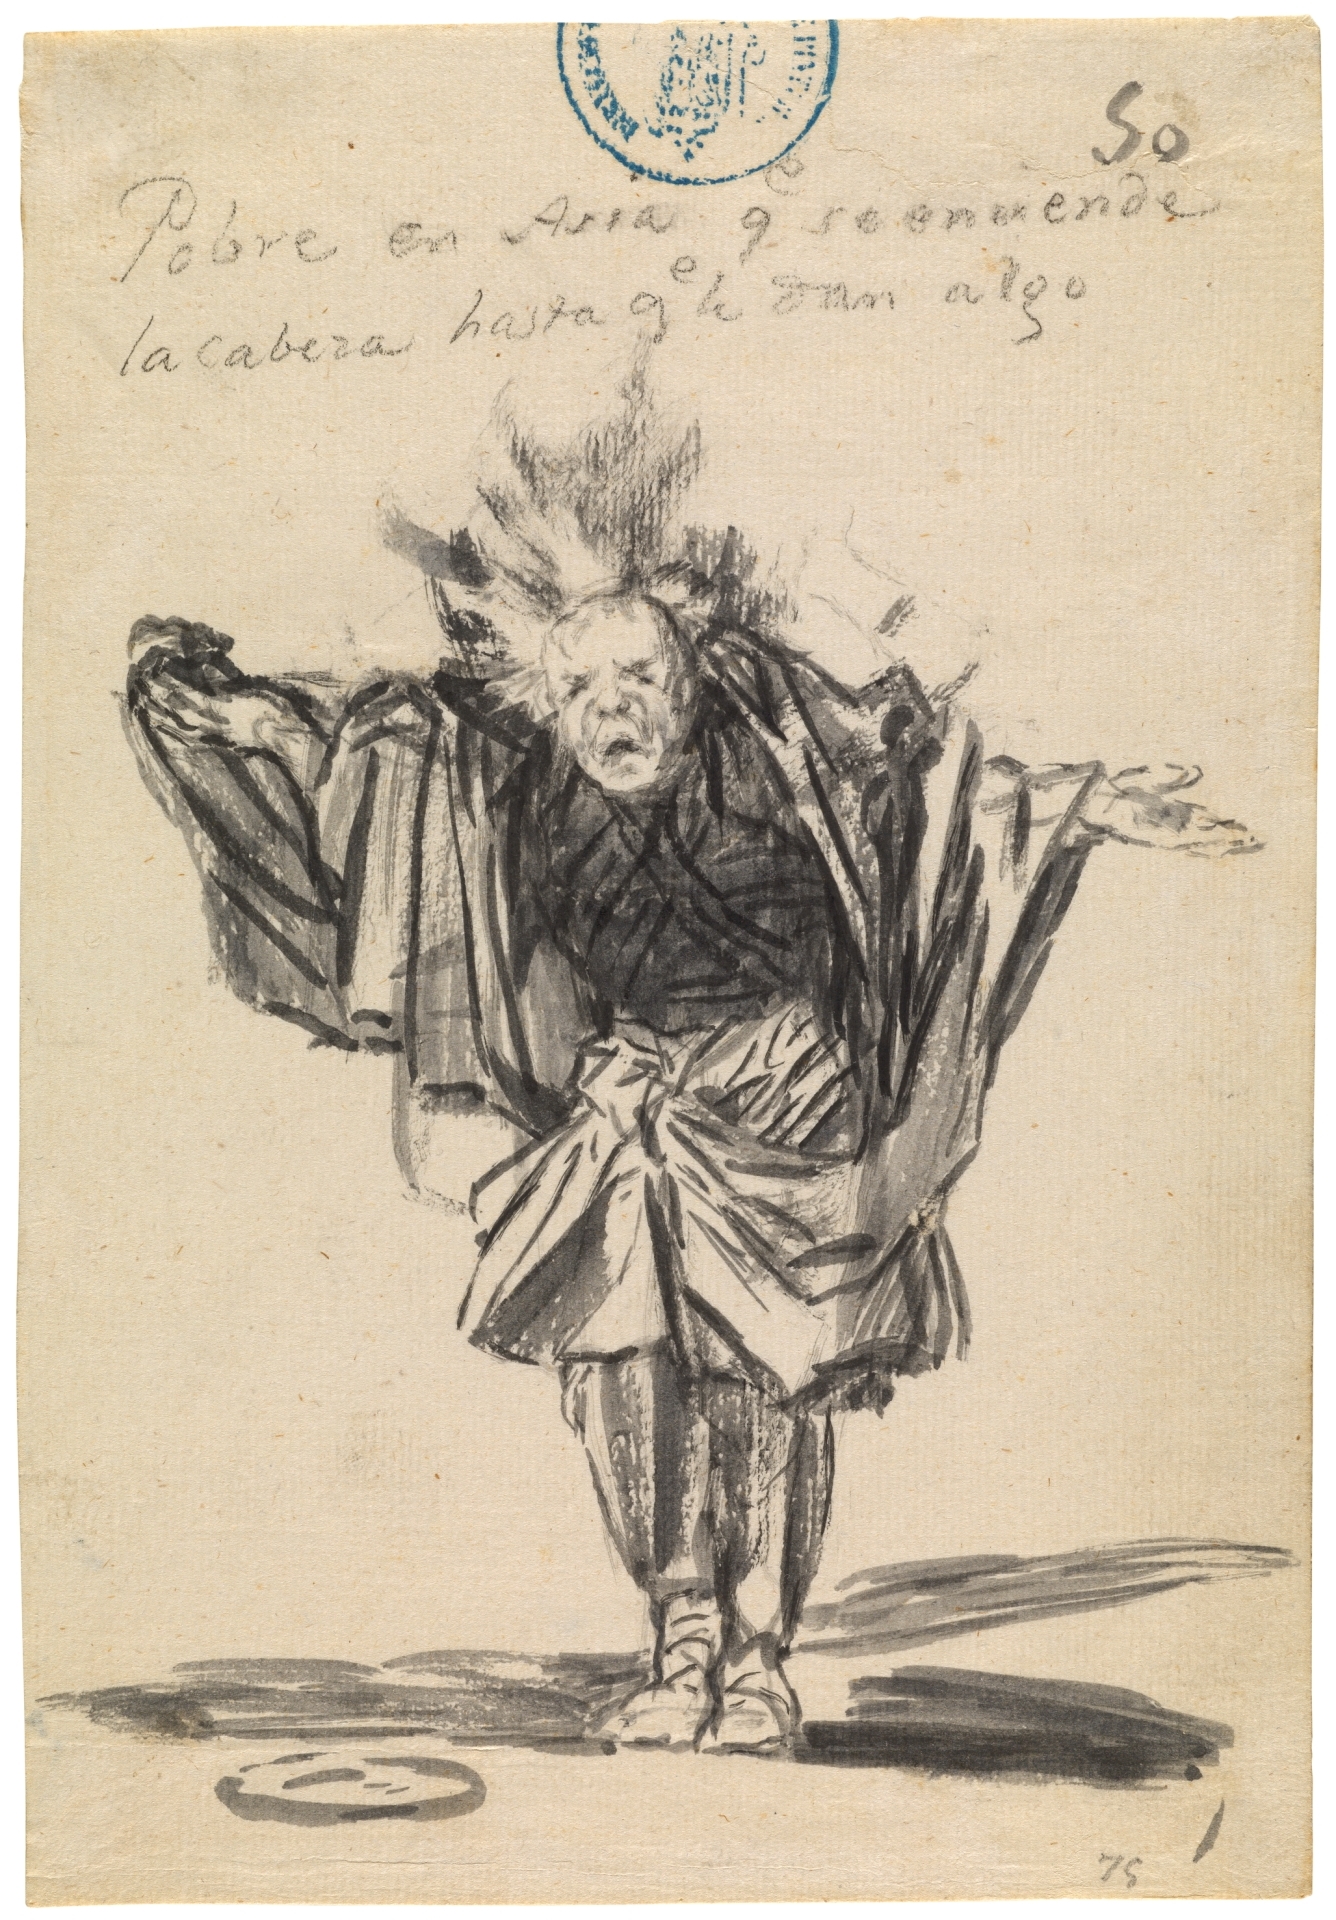 50
Pobre en Asia qe se enciende
la cabeza hasta qe le dan algo
75